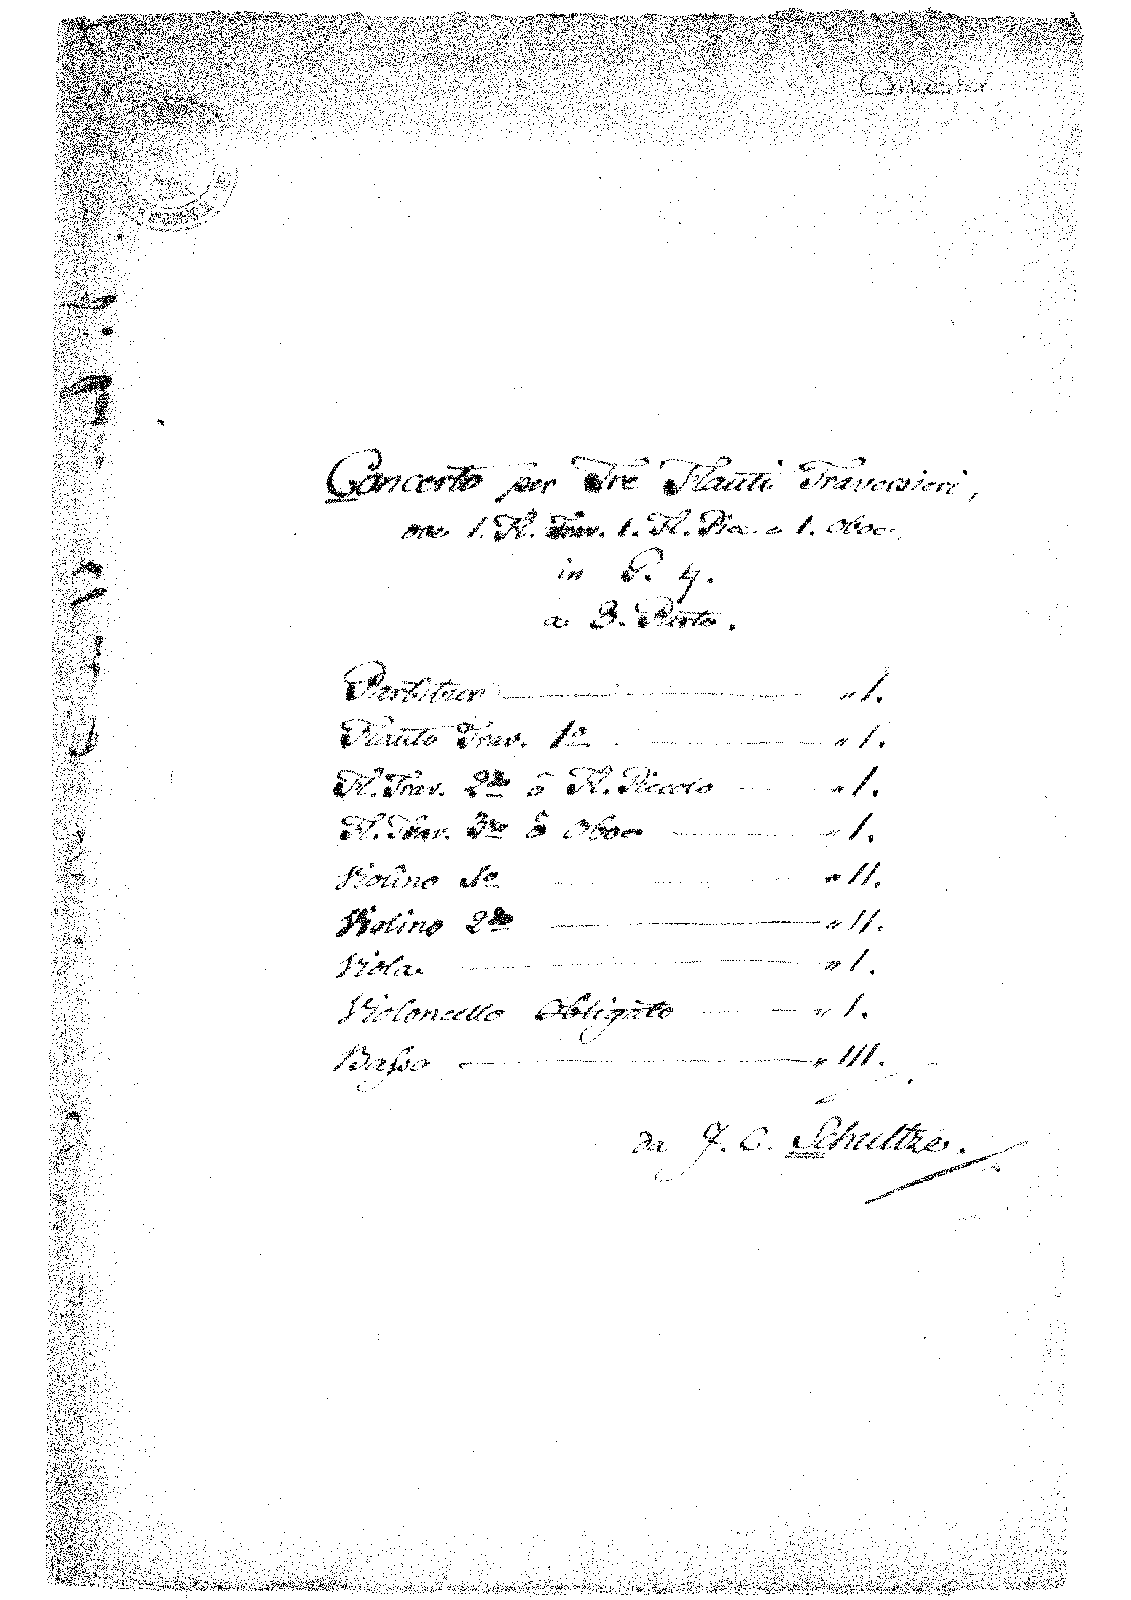 Concerto per Tre Flauti Traversieri,
1. Fl. Trav. 1. Fl. Picc. e 1. Oboe.
in G. ♮.
a 3. Parte.
Partitur " 1.
Flauto Trav. 1o " 1.
Fl. Trav. 2do ô Fl. Piccolo " 1.
Fl. Trav. 3zo ô Oboe " 1.
Violino 1o " 11.
Violino 2do " 11.
Viola. " 1.
Violoncello Obligato " 1.
Basso " 111.
Da J. C. Schultze.